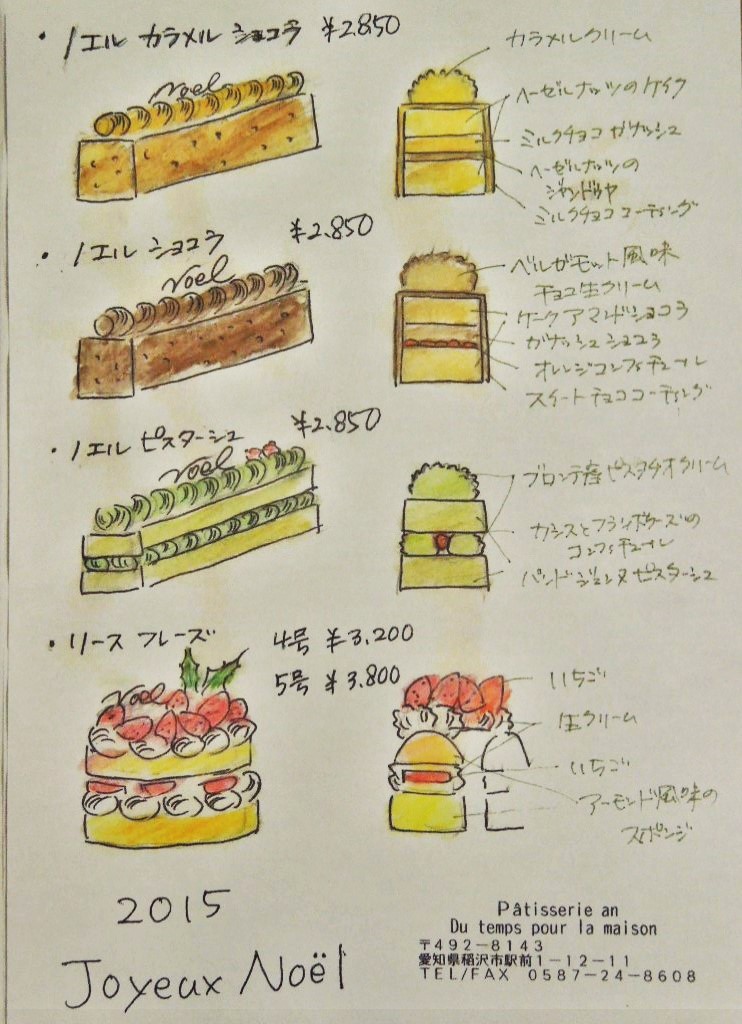 ・ノエル カラメル ショコラ ¥2.850
Noel
カラメルクリーム
ヘーゼルナッツのケイク
ミルクチョコ ガナッシュ
ヘーゼルナッツの
ジャンドゥヤ
ミルクチョココーティング
・ノエル ショコラ ¥2.850
Noel
ベルガモット風味
チョコ生クリーム
ケーク アマンドショコラ
ガナッシュ ショコラ
オレンジコンフィチュール
スイートチョココーティング
・ノエル ピスターシュ ¥2.850
Noel
ブロンテ産ピスタチオクリーム
カシスとフランボワーズの
コンフィチュール
パンドジェンヌピスターシュ
・リース フレーズ 4号 ¥3.200
5号 ¥3.800
Noel
いちご
生クリーム
いちご
アーモンド風味の
スポンジ
2015
Joyeux Noël
Pâtisserie an
Du temps pour la maison
〒492-8143
愛知県稲沢市駅前1-12-11
TEL/FAX 0587-24-8608